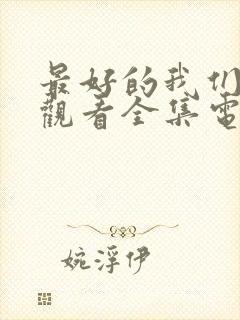 最好的我们
觀看全集電
婉浮伊